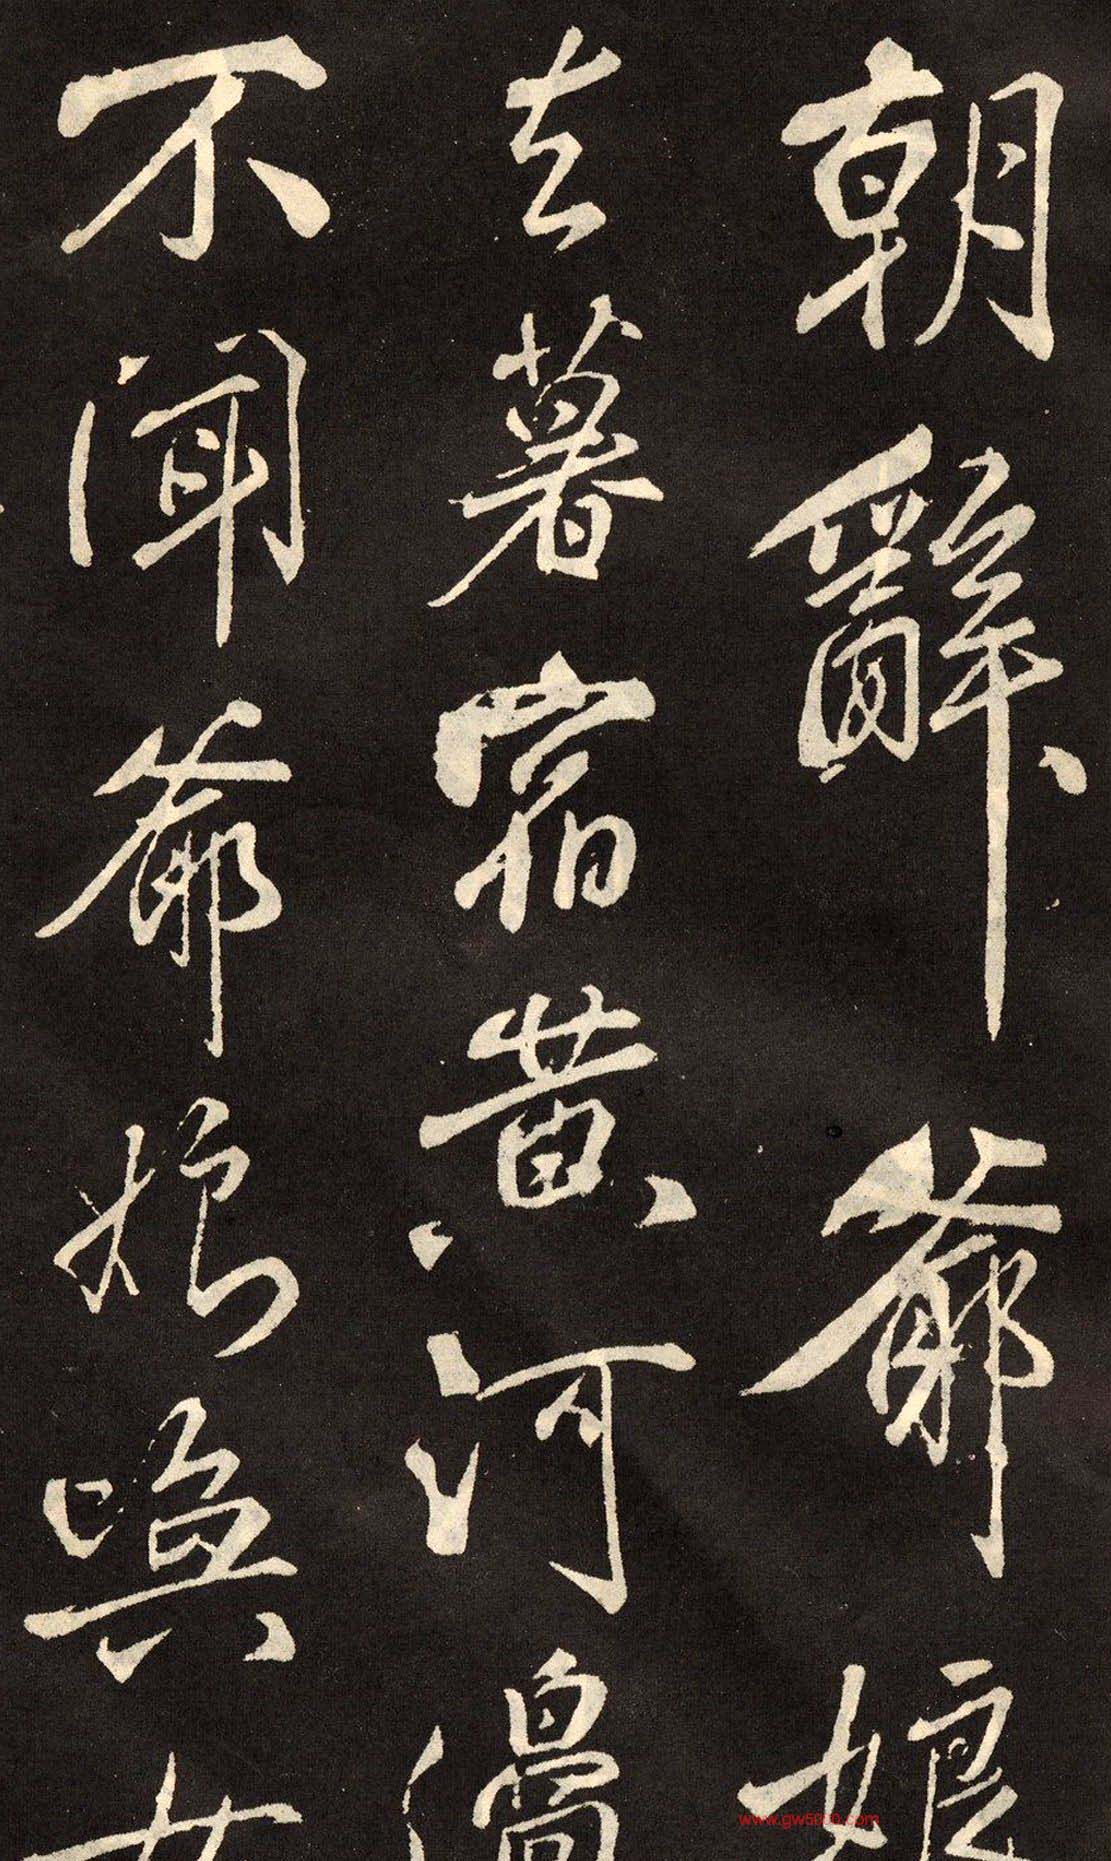 朝辭爺娘
去暮宿黄河邊
不聞爺娘喚女
www.gw5000.com